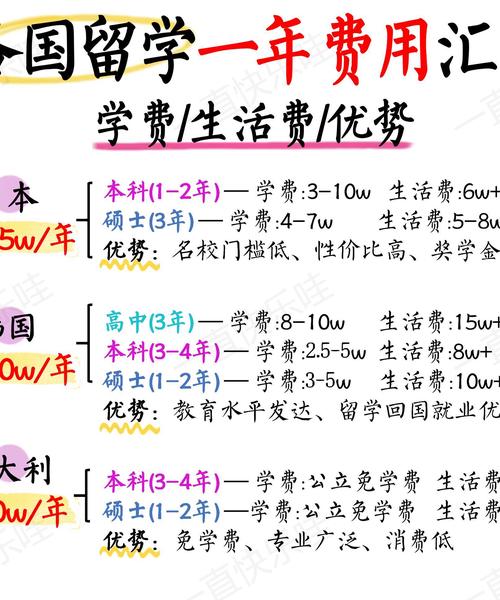 国留学一年费用汇
学费/生活费/优势
本
5w/年
本科(1-2年)—学费:3-10w 生活费:6w+
硕士(3年)—学费:4-7w 生活费:5-8w
优势:名校门槛低、性价比高、奖学金
国
0w/年
高中(3年)—学费:8-10w 生活费:15w+
本科(3-4年)—学费:2.5-5w 生活费:8w+
硕士(1-2年)—学费:3-5w 生活费:10w+
优势:教育水平发达、留学回国就业优
大利
0w/年
本科(3-4年)—学费:公立免学费 生活费
硕士(1-2年)—学费:公立免学费 生活费
优势:免学费、专业广泛、消费低
一直快乐哇